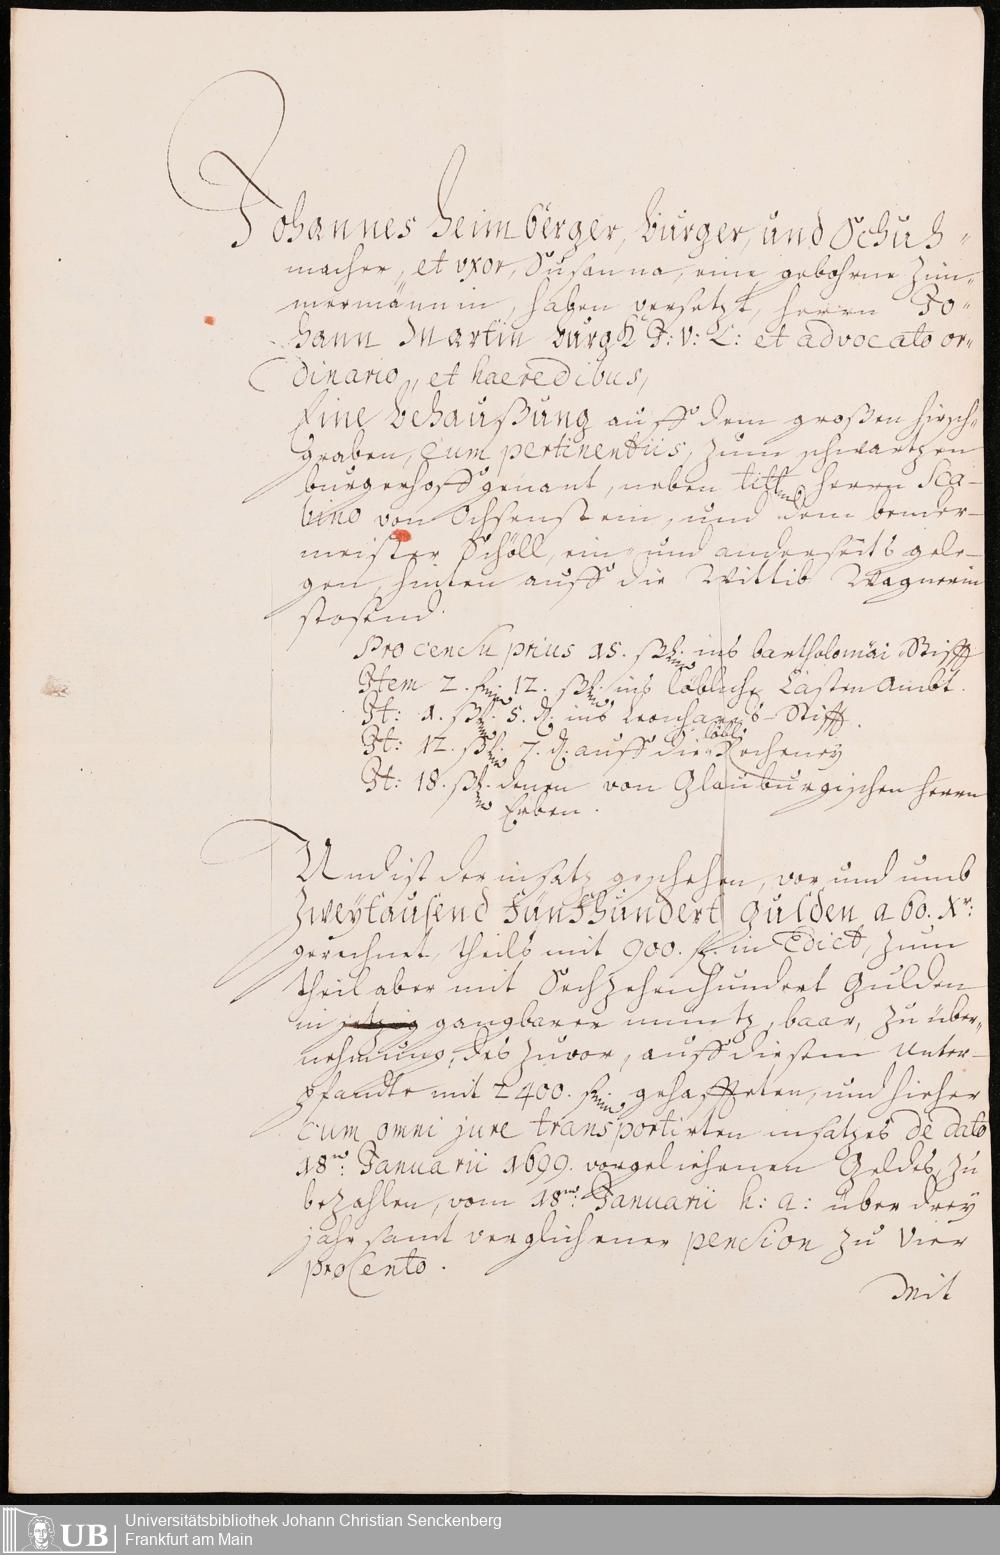 Johannes Heimberger, burger, und Schuh-
macher, et uxor, Susanna, eine gebohrne Zim-
mermännin, haben versetzt, herrn Jo-
hann Martin burgk J: V: L: et advocato or-
dinario, et haeredibus,
Eine behaußung auff dem großen hirsch-
graben, cum pertinentiis, zum schwartzen
burgerhoff genant, neben titt herrn Sca-
bino von Ochsenstein, und dem bender-
meister Schöll, ein- und anderseits gele-
gen, hinten auff die Wittib Wagnerin
stosend.
Pro censu prius 15. ßl. ins bartholomäi Stifft
Item 2. fl. 12. ßl. ins löbliche Casten Ambt.
It: 1. ßl. 5. d. ins Leonhards-Stifft.
It: 12. ßl. 7. d. auff die löbl. Recheney
It: 18. ßl. denen von Glauburgischen herrn
Erben.
Und ist der insatz geschehen, vor und umb
Zweytausend Fünfhundert gulden a 60. Xr:
gerechnet, theils mit 900. fl. in Edict, zum
theil aber mit Sechzehenhundert Gulden
in jetzig gangbarer müntz, baar, zu über-
nehmung, des zuvor, auff diesem Unter-
pfandte mit 2400. fl. gehaffteten, und hieher
cum omni jure transportirten insatzes de dato
18ten: Januarii 1699. vorgeliehenen Geldes, zu
bezahlen, vom 18ten: Januarii h: a: über drey
jahr samt verglichener pension zu Vier
proCento.
Mit
UB
Universitätsbibliothek Johann Christian Senckenberg
Frankfurt am Main